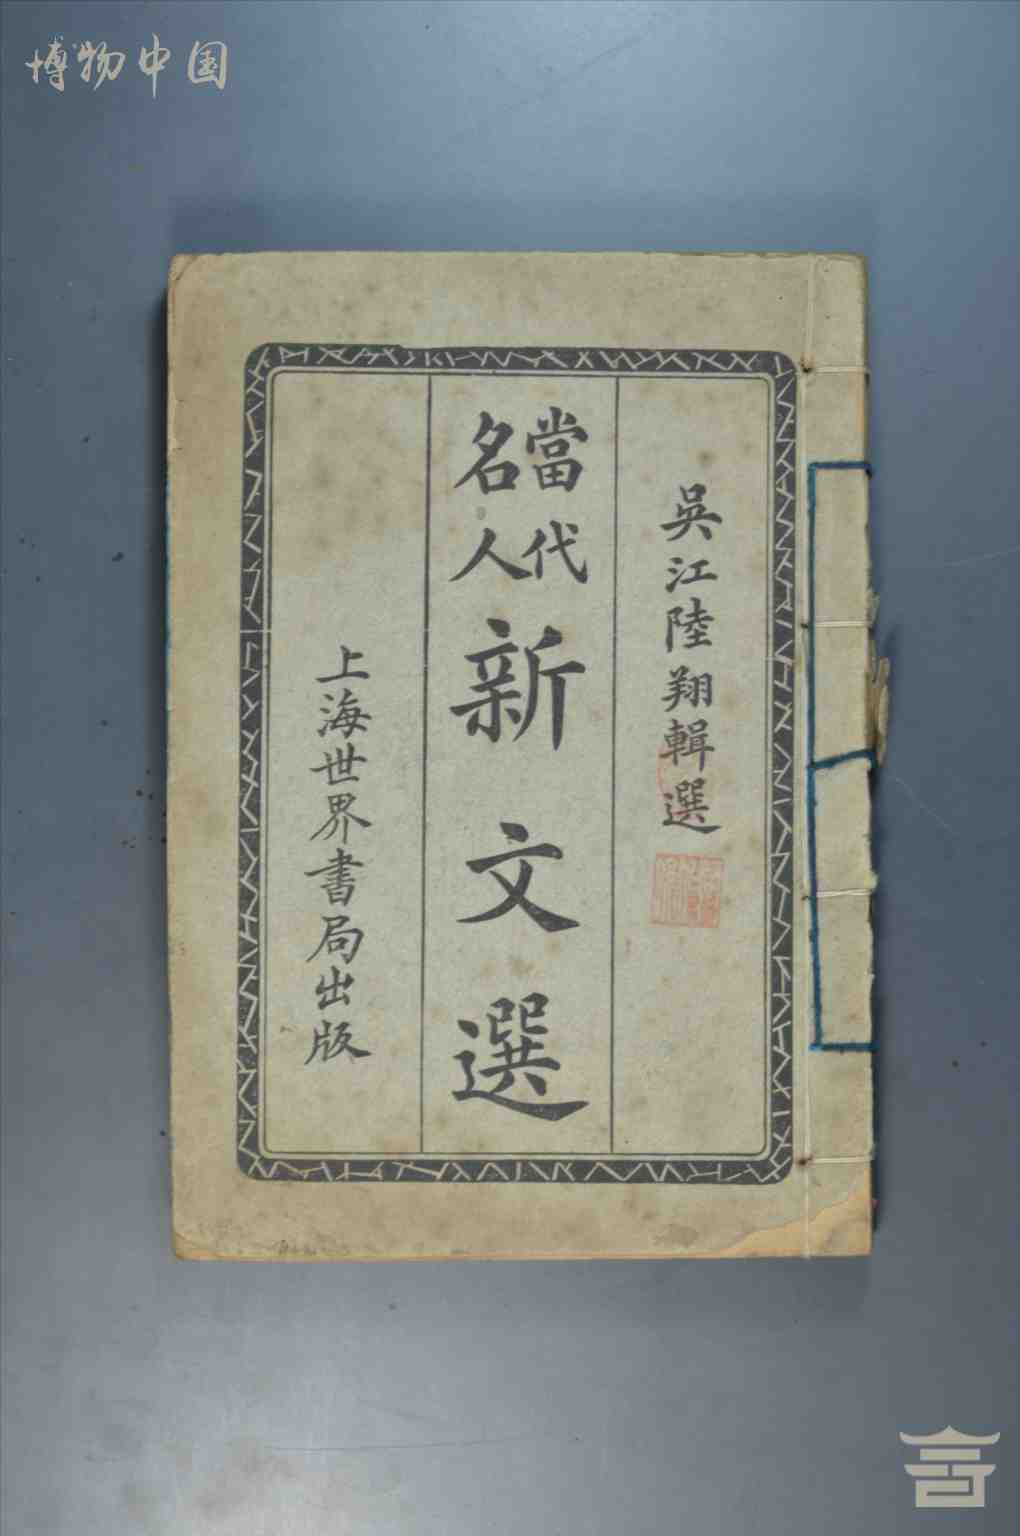 博物中国
吳江陸翔輯選
當代
名人
新文選
上海世界書局出版